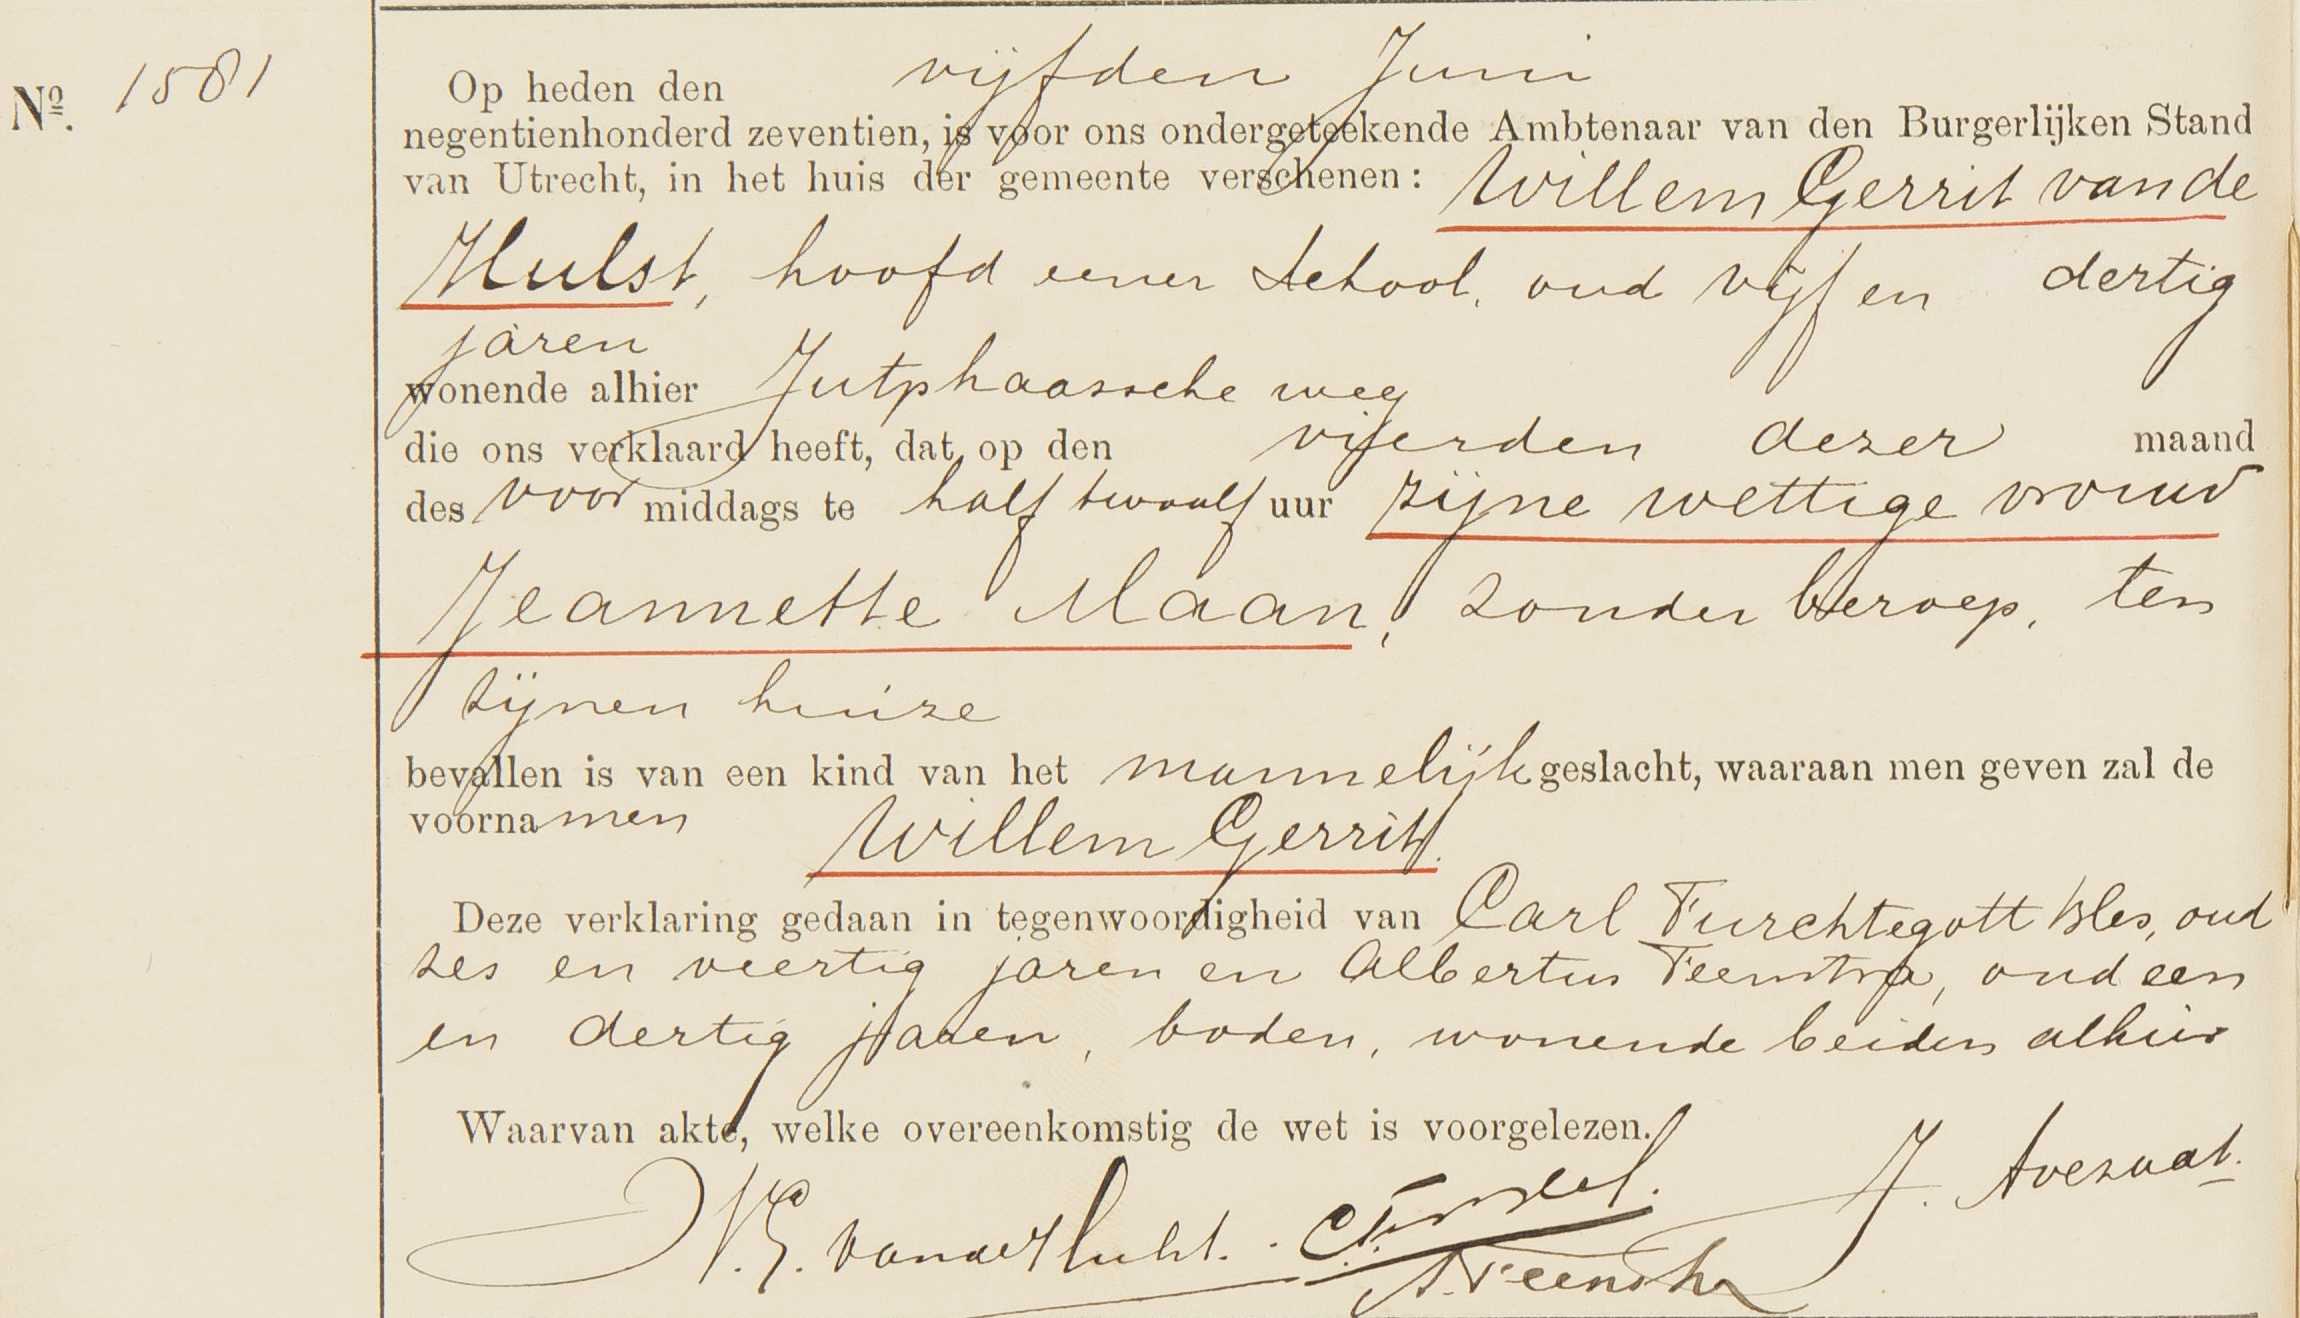 Nº. 1581
Op heden den vijfden Juni
negentienhonderd zeventien, is voor ons ondergeteekende Ambtenaar van den Burgerlijken Stand
van Utrecht, in het huis der gemeente verschenen: Willem Gerrit van de
Hulst, hoofd eener school, oud vijf en dertig
jaren
wonende alhier Jutphaassche weg
die ons verklaard heeft, dat op den vierden dezer maand
des voor middags te half twaalf uur zijne wettige vrouw
Jeannette Maan, zonder beroep, ten
zijnen huize
bevallen is van een kind van het mannelijk geslacht, waaraan men geven zal de
voornamen Willem Gerrit.
Deze verklaring gedaan in tegenwoordigheid van Carl Furchtegott, oud
zes en veertig jaren en Albertus Feenstra, oud een
en dertig jaren, boden, wonende beiden alhier
Waarvan akte, welke overeenkomstig de wet is voorgelezen.
W.G. van de Hulst. J. Avezaat.
A. Feenstra